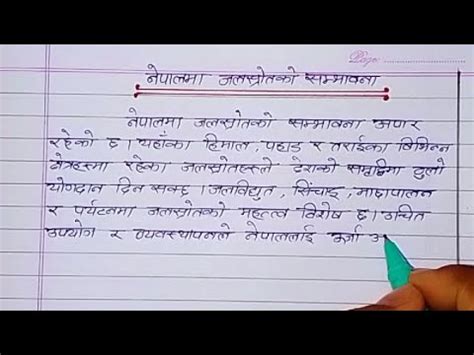 Page:
नेपालमा जलस्रोतको सम्भावना
नेपालमा जलस्रोतको सम्भावना अपार
रहेको छ । यहाँका हिमाल, पहाड र तराईका विभिन्न
क्षेत्रहरूमा रहेका जलस्रोतहरूले देशको समृद्धिमा ठुलो
योगदान दिन सक्छ । जलविद्युत, सिंचाइ, माछापालन
र पर्यटनमा जलस्रोतको महत्त्व विशेष छ । उचित
उपयोग र व्यवस्थापनले नेपाललाई ऊर्जा